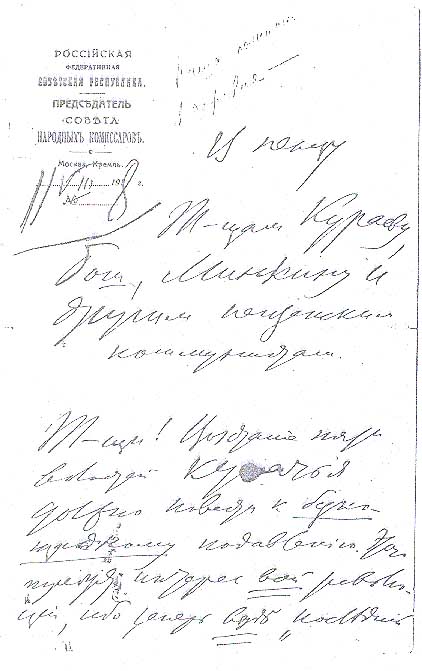 РОССІЙСКАЯ
ФЕДЕРАТИВНАЯ
СОВѢТСКАЯ РЕСПУБЛИКА.
ПРЕДСѢДАТЕЛЬ
СОВѢТА
НАРОДНЫХЪ КОМИССАРОВЪ.
Москва, Кремль.
11/VIII 1918 г.
№
В Пензу
Т-щам Кураеву,
Бош, Минкину и
другим пензенским
коммунистам.
Т-щи! Восстание пяти
волостей кулачья
должно повести к беспо-
щадному подавлению. Этого
требует интерес всей револю-
ции, ибо теперь взят „последний